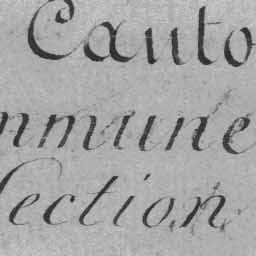 Canto
mmune
Section